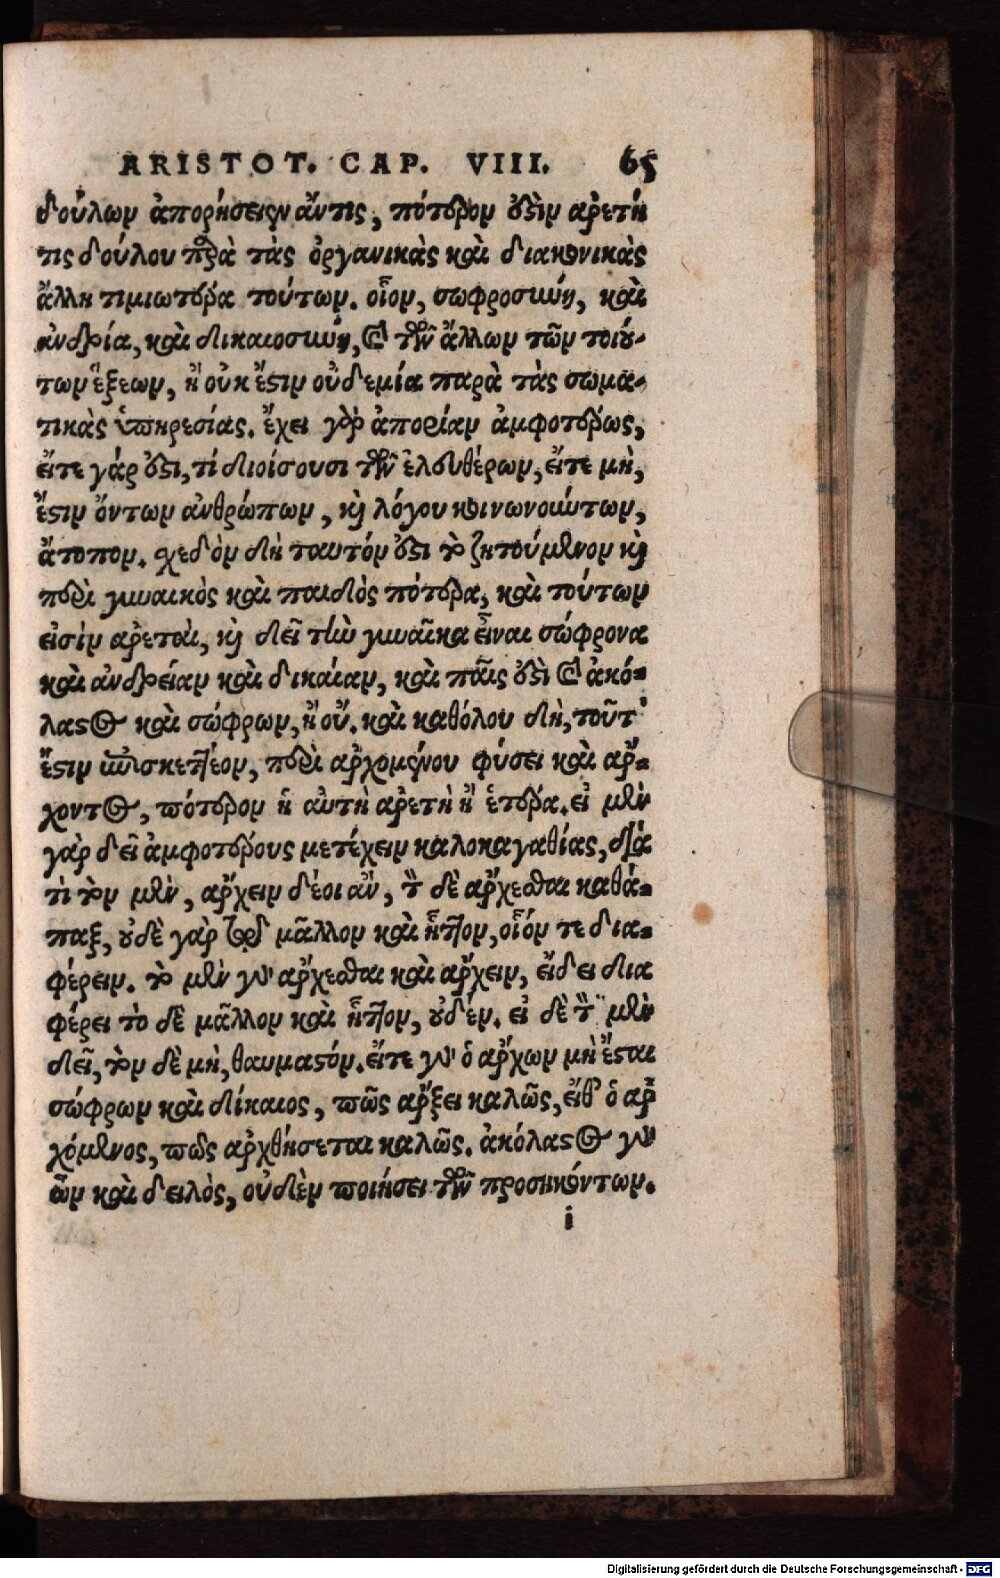 ARISTOT. CAP. VIII. 65
δούλων ἀπορήσειεν ἄντις, πότερον ὅξιν ἀρετή
τις δούλου παρὰ τὰς ὀργανικὰς καὶ διακονικὰς
ἄλλη τιμιωτέρα τούτων. οἷον, σωφροσύνη, καὶ
ἀνδρία, καὶ δικαιοσύνη, καὶ τῶν ἄλλων τῶν τοιού-
των ἕξεων, ἢ οὐκ ἔστιν οὐδεμία παρὰ τὰς σωμα-
τικὰς ὑπηρεσίας. ἔχει γὰρ ἀπορίαν ἀμφοτέρως,
εἴτε γάρ ἐστι, τί διοίσουσι τῶν ἐλευθέρων, εἴτε μὴ,
ἔστιν ὄντων ἀνθρώπων, καὶ λόγου κοινωνούντων,
ἄτοπον. σχεδὸν δὴ ταυτόν ἐστι τὸ ζητούμενον καὶ
περὶ γυναικὸς καὶ παιδὸς πότερα, καὶ τούτων
εἰσὶν ἀρεταὶ, καὶ δεῖ τὴν γυναῖκα εἶναι σώφρονα
καὶ ἀνδρείαν καὶ δικαίαν, καὶ παῖς ἐστὶ καὶ ἀκό-
λαστος καὶ σώφρων, ἢ οὔ. καὶ καθόλου δὴ, τοῦτ'
ἔστιν ἐπισκεπτέον, περὶ ἀρχομένου φύσει καὶ ἄρ-
χοντος, πότερον ἡ αὐτὴ ἀρετὴ ἢ ἑτέρα. εἰ μὲν
γὰρ δεῖ ἀμφοτέρους μετέχειν καλοκαγαθίας, διὰ
τί τὸν μὲν, ἄρχειν δέοι ἂν, τὸν δὲ ἄρχεσθαι καθά-
παξ, οὐδὲ γὰρ τῷ μᾶλλον καὶ ἧττον, οἷόν τε δια-
φέρειν. τὸ μὲν γὰρ ἄρχεσθαι καὶ ἄρχειν, εἴδει δια
φέρει τὸ δὲ μᾶλλον καὶ ἧττον, οὐδέν. εἰ δὲ τὸν μὲν
δεῖ, τὸν δὲ μὴ, θαυμαστόν. εἴτε γὰρ ὁ ἄρχων μὴ ἔσται
σώφρων καὶ δίκαιος, πῶς ἄρξει καλῶς, εἴθ' ὁ ἀρ
χόμενος, πῶς ἀρχθήσεται καλῶς. ἀκόλαστος γὰρ
ὢν καὶ δειλὸς, οὐδὲν ποιήσει τῶν προσηκόντων.
i
Digitalisierung gefördert durch die Deutsche Forschungsgemeinschaft - DFG